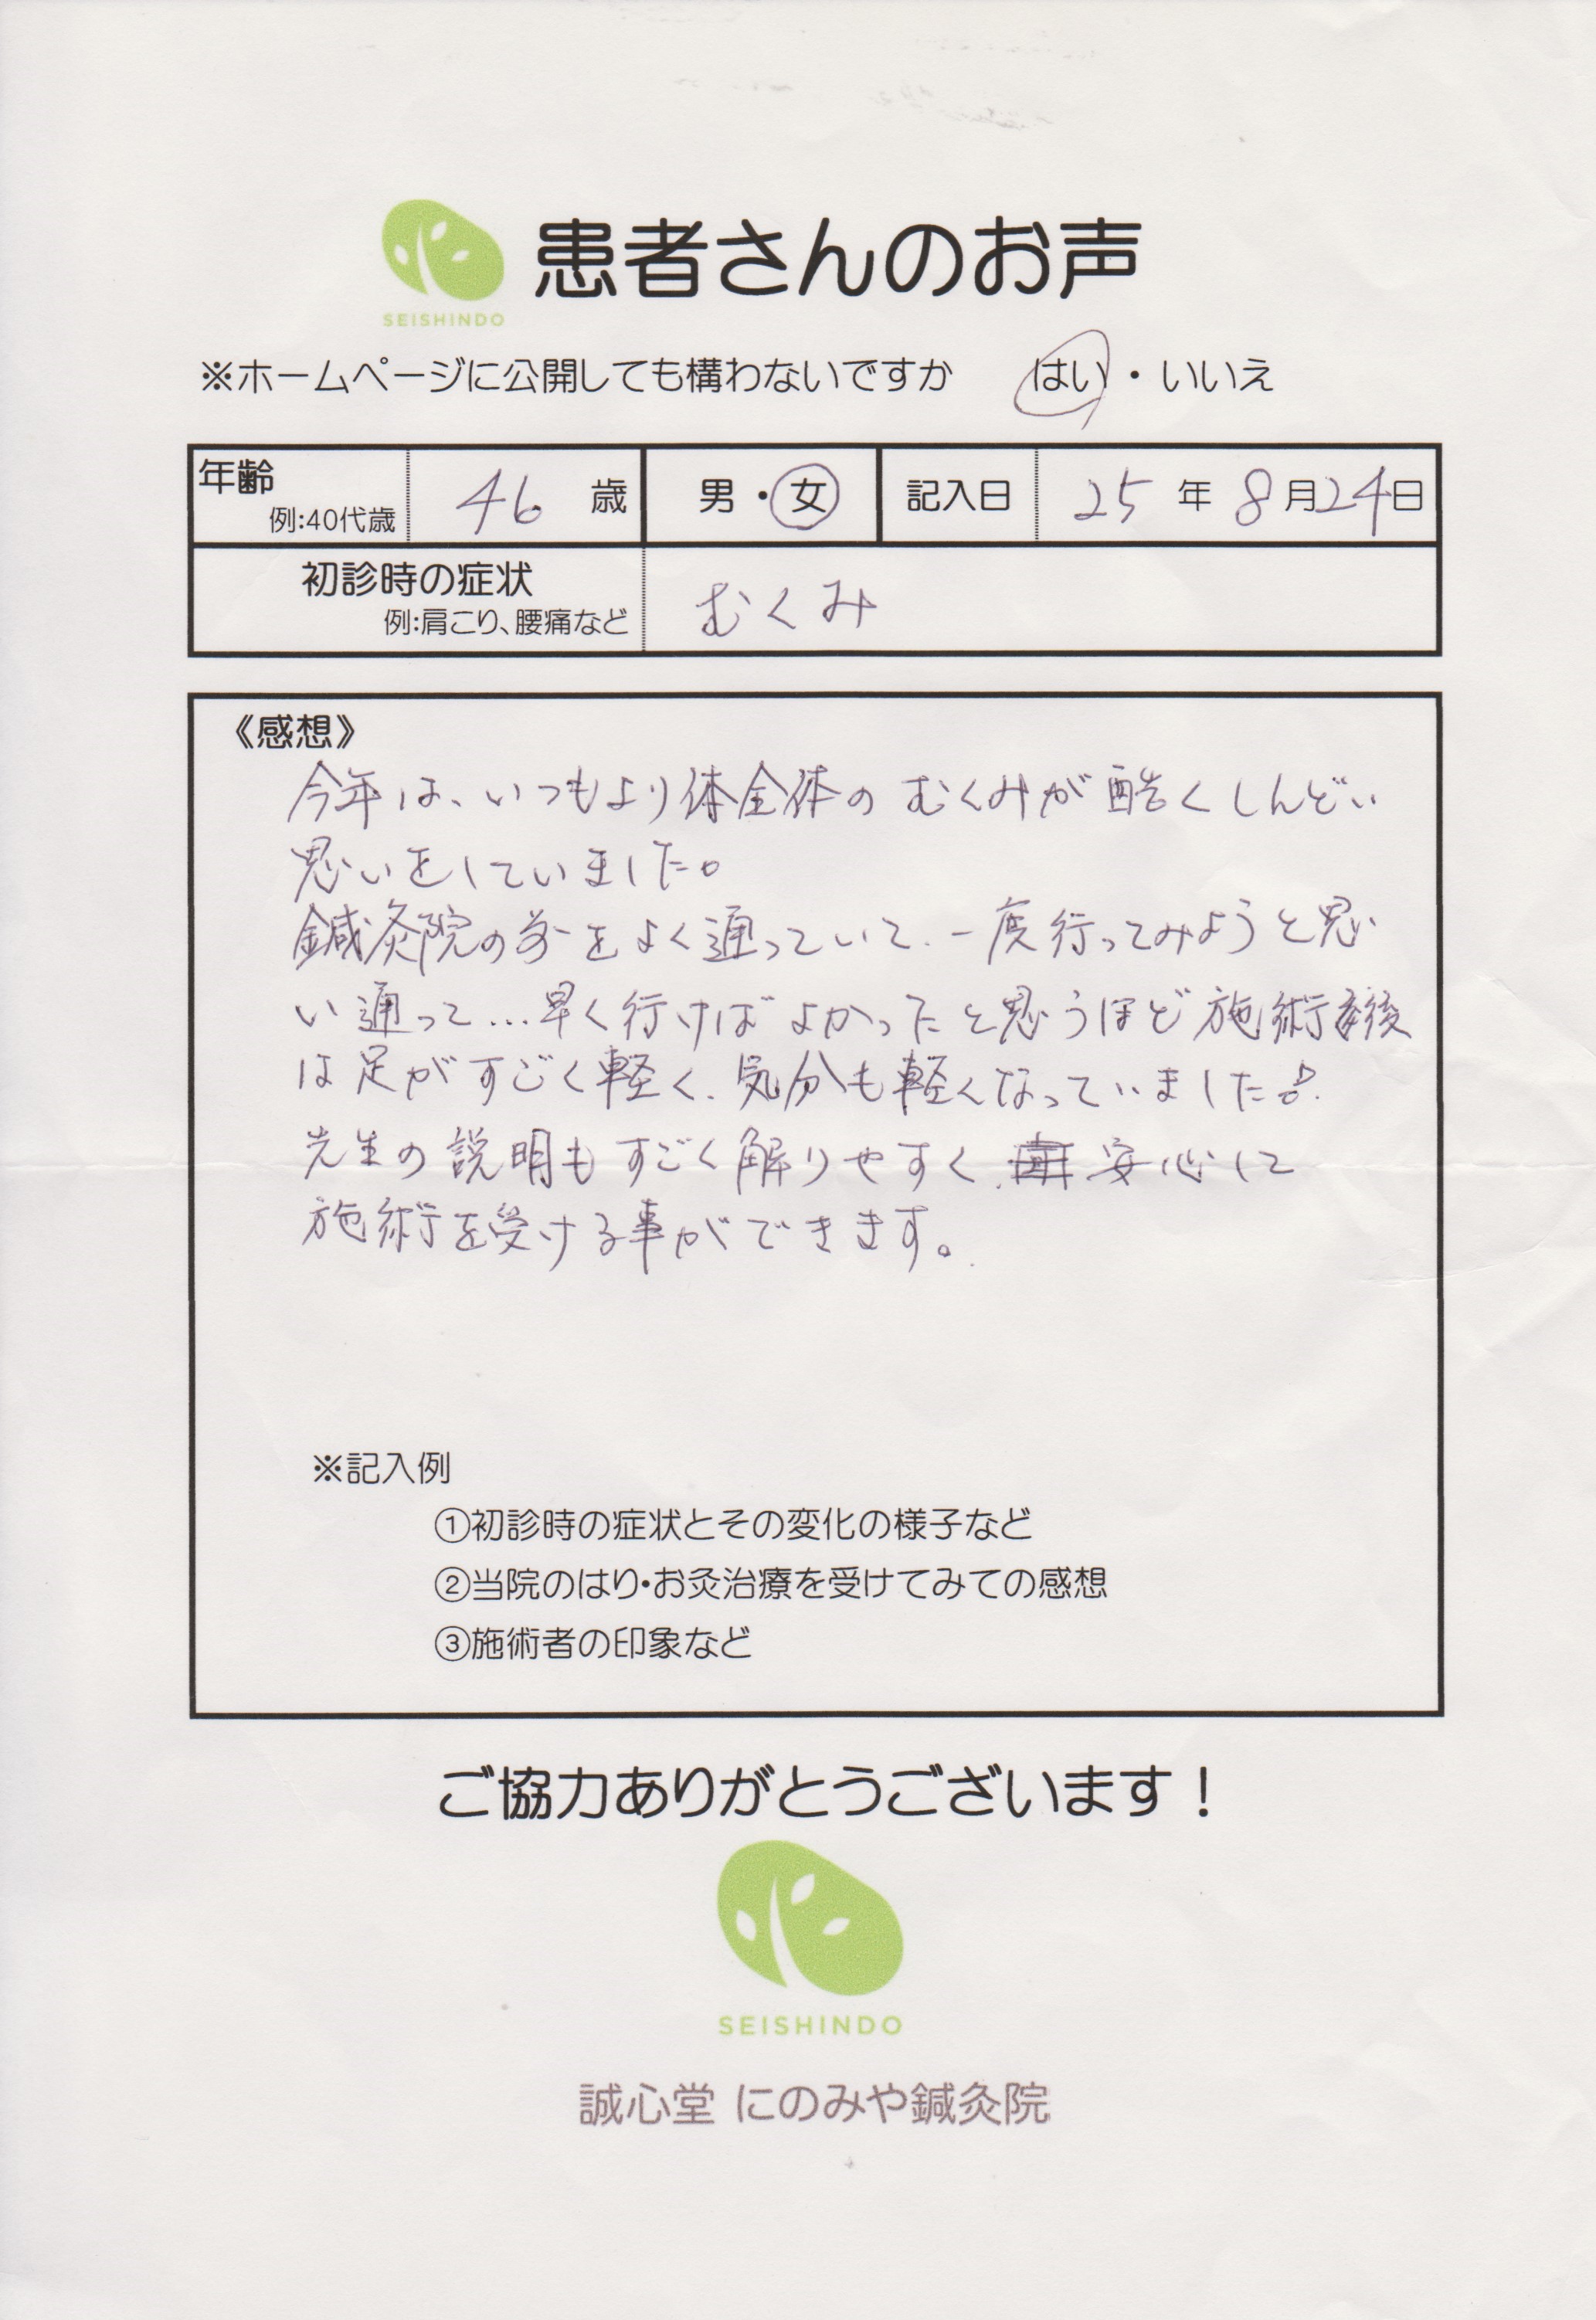 患者さんのお声
SEISHINDO
※ホームページに公開しても構わないですか はい・いいえ
年齢 例:40代歳 46 歳 男・女 記入日 25 年 8 月 24 日
初診時の症状
例:肩こり、腰痛など むくみ
《感想》
今年は、いつもより体全体のむくみが酷くしんどい
思いをしていました。
鍼灸院の前をよく通っていて、一度行ってみようと思
い通って…早く行けばよかったと思うほど施術後
は足がすごく軽く、気分も軽くなっていました♪
先生の説明もすごく解りやすく、安心して
施術を受ける事ができます。
※記入例
①初診時の症状とその変化の様子など
②当院のはり・お灸治療を受けてみての感想
③施術者の印象など
ご協力ありがとうございます！
SEISHINDO
誠心堂 にのみや鍼灸院